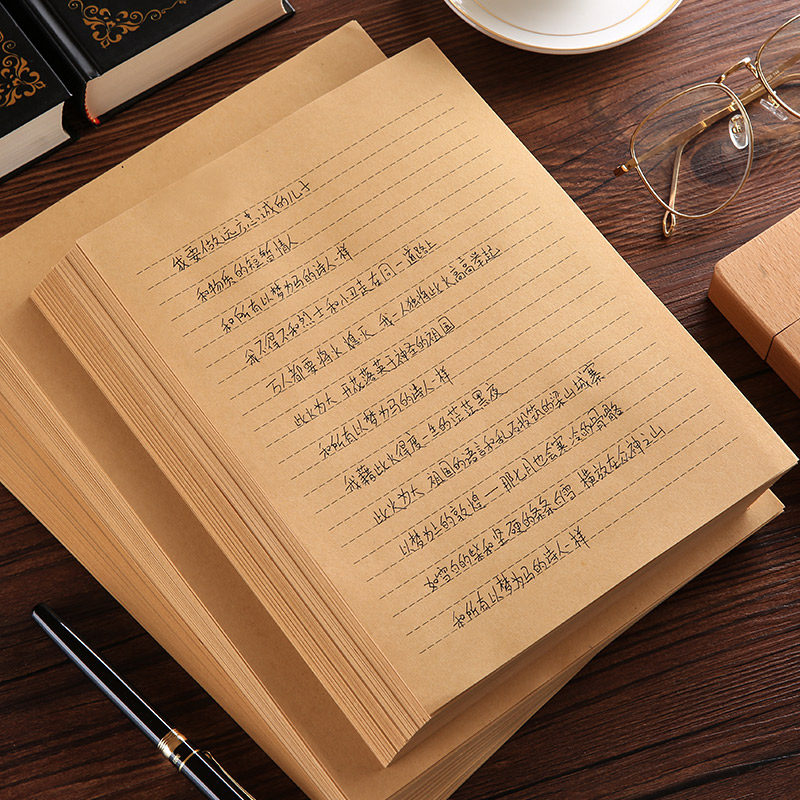 我要做远方忠诚的儿子
和物质的短暂情人
和所有以梦为马的诗人一样
我不得不和烈士和小丑走在同一道路上
万人都要将火熄灭 我一人独将此火高高举起
此火为大 开花落英于神圣的祖国
和所有以梦为马的诗人一样
我藉此火得度一生的茫茫黑夜
此火为大 祖国的语言和乱石投筑的梁山城寨
以梦为上的敦煌——那七月也会寒冷的骨骼
如雪白的柴和坚硬的条条白雪 横放在众神之山
和所有以梦为马的诗人一样